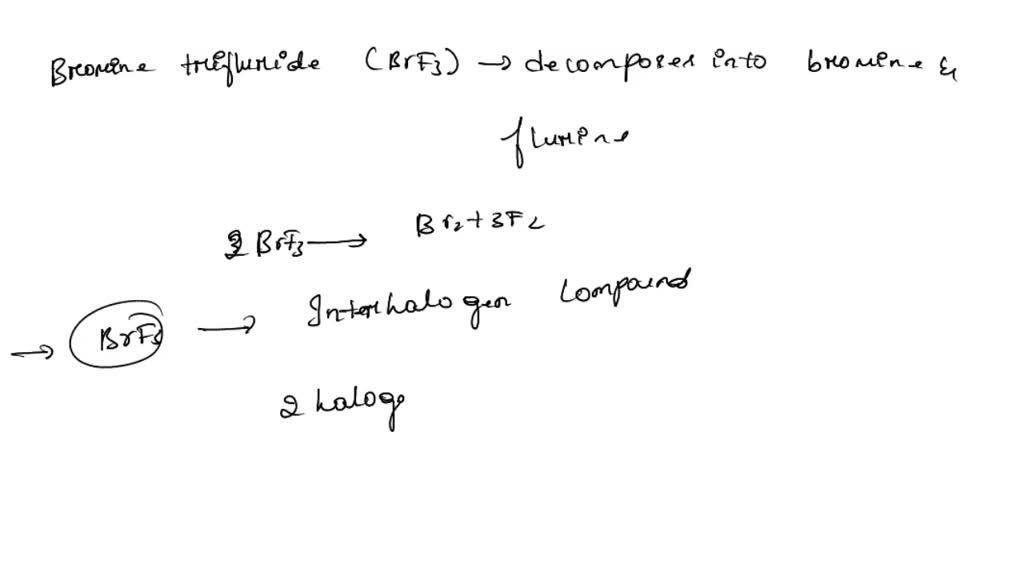 Bromine trifluride (BrF3) → decomposes into bromine &
flurine
2 BrF3 → Br2 + 3F2
→ BrF3 → Interhalogen compound
2 haloge